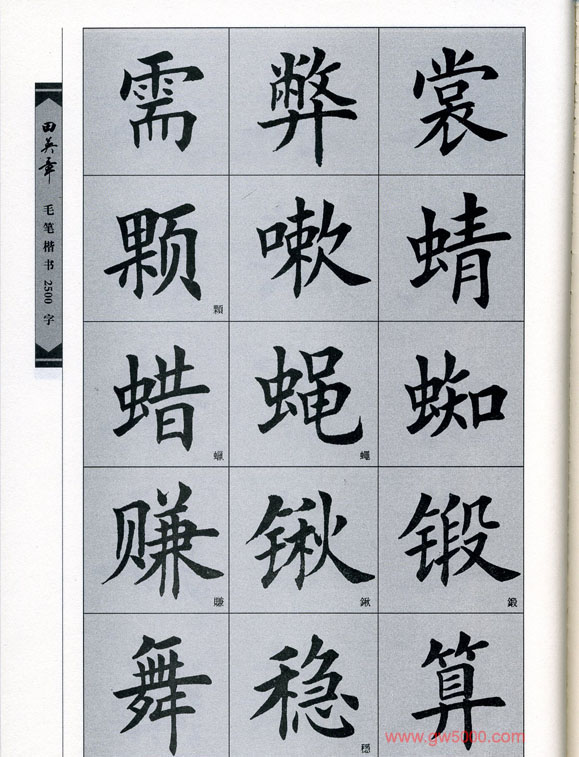 田英章 毛笔楷书 2500 字
需 弊 裳
颗 嗽 蜻
顆
蜡 蝇 蜘
蠟 蠅
赚 锹 锻
賺 鍬 鍛
舞 稳 算
穩
www.gw5000.com